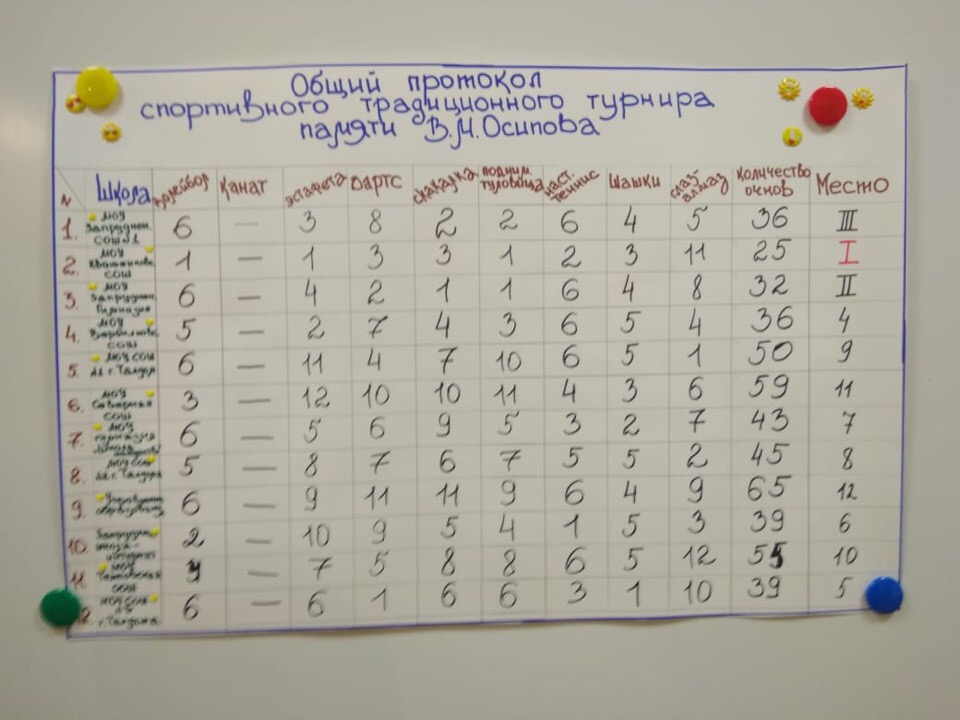 Общий протокол
спортивного традиционного турнира
памяти В.М.Осипова
N Школа волейбол Канат эстафета Дартс скакалка подним. туловища наст. теннис шашки глаз-алмаз количество очков Место
1. МОУ Запруднен. СОШ №1 6 — 3 8 2 2 6 4 5 36 III
2. МОУ СОШ 1 — 1 3 3 1 2 3 11 25 I
3. МОУ Запруднен. Гимназия 6 — 4 2 1 1 6 4 8 32 II
4. МОУ СОШ 5 — 2 7 4 3 6 5 4 36 4
5. МОУ СОШ г. Талдом 6 — 11 4 7 10 6 5 1 50 9
6. МОУ СОШ 3 — 12 10 10 11 4 3 6 59 11
7. МОУ гимназия 6 — 5 6 9 5 3 2 7 43 7
8. МОУ СОШ г. Талдом 5 — 8 7 6 7 5 5 2 45 8
9. 6 — 9 11 11 9 6 4 9 65 12
10. Запруднен. школа-интернат 2 — 10 9 5 4 1 5 3 39 6
11. МОУ СОШ — 7 5 8 8 6 5 12 55 10
2. МОУ СОШ г. Талдома 6 — 6 1 6 6 3 1 10 39 5